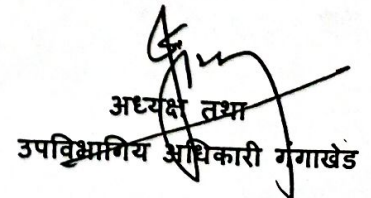 अध्यक्ष तथा
उपविभागिय अधिकारी गंगाखेड